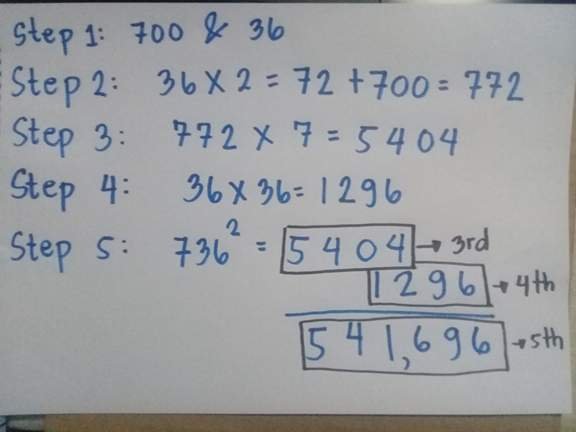 Step 1: 700 & 36
Step 2: 36 x 2 = 72 + 700 = 772
Step 3: 772 x 7 = 5404
Step 4: 36 x 36 = 1296
Step 5: 736² = 5404 → 3rd
1296 → 4th
541,696 → 5th